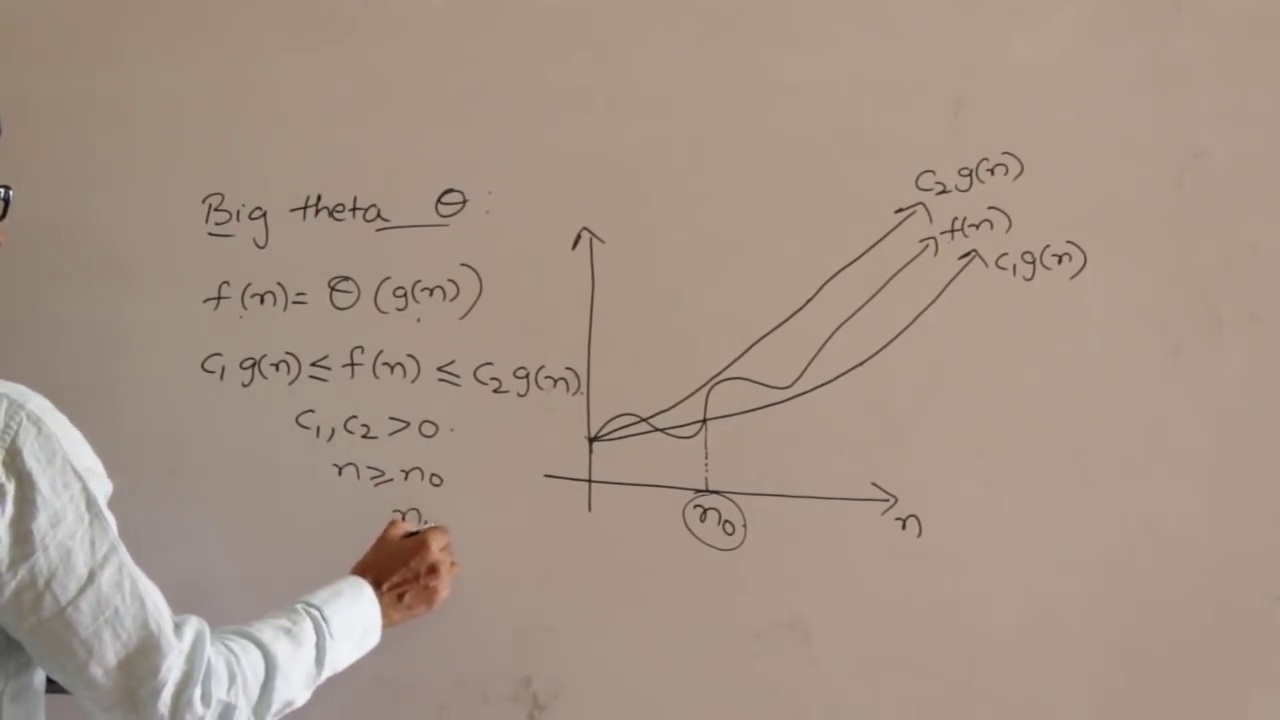 Big theta θ:
f(n)= θ(g(n))
c₁g(n) ≤ f(n) ≤ c₂g(n).
c₁, c₂ > 0.
n ≥ n₀
n
c₂g(n)
f(n)
c₁g(n)
n₀
n